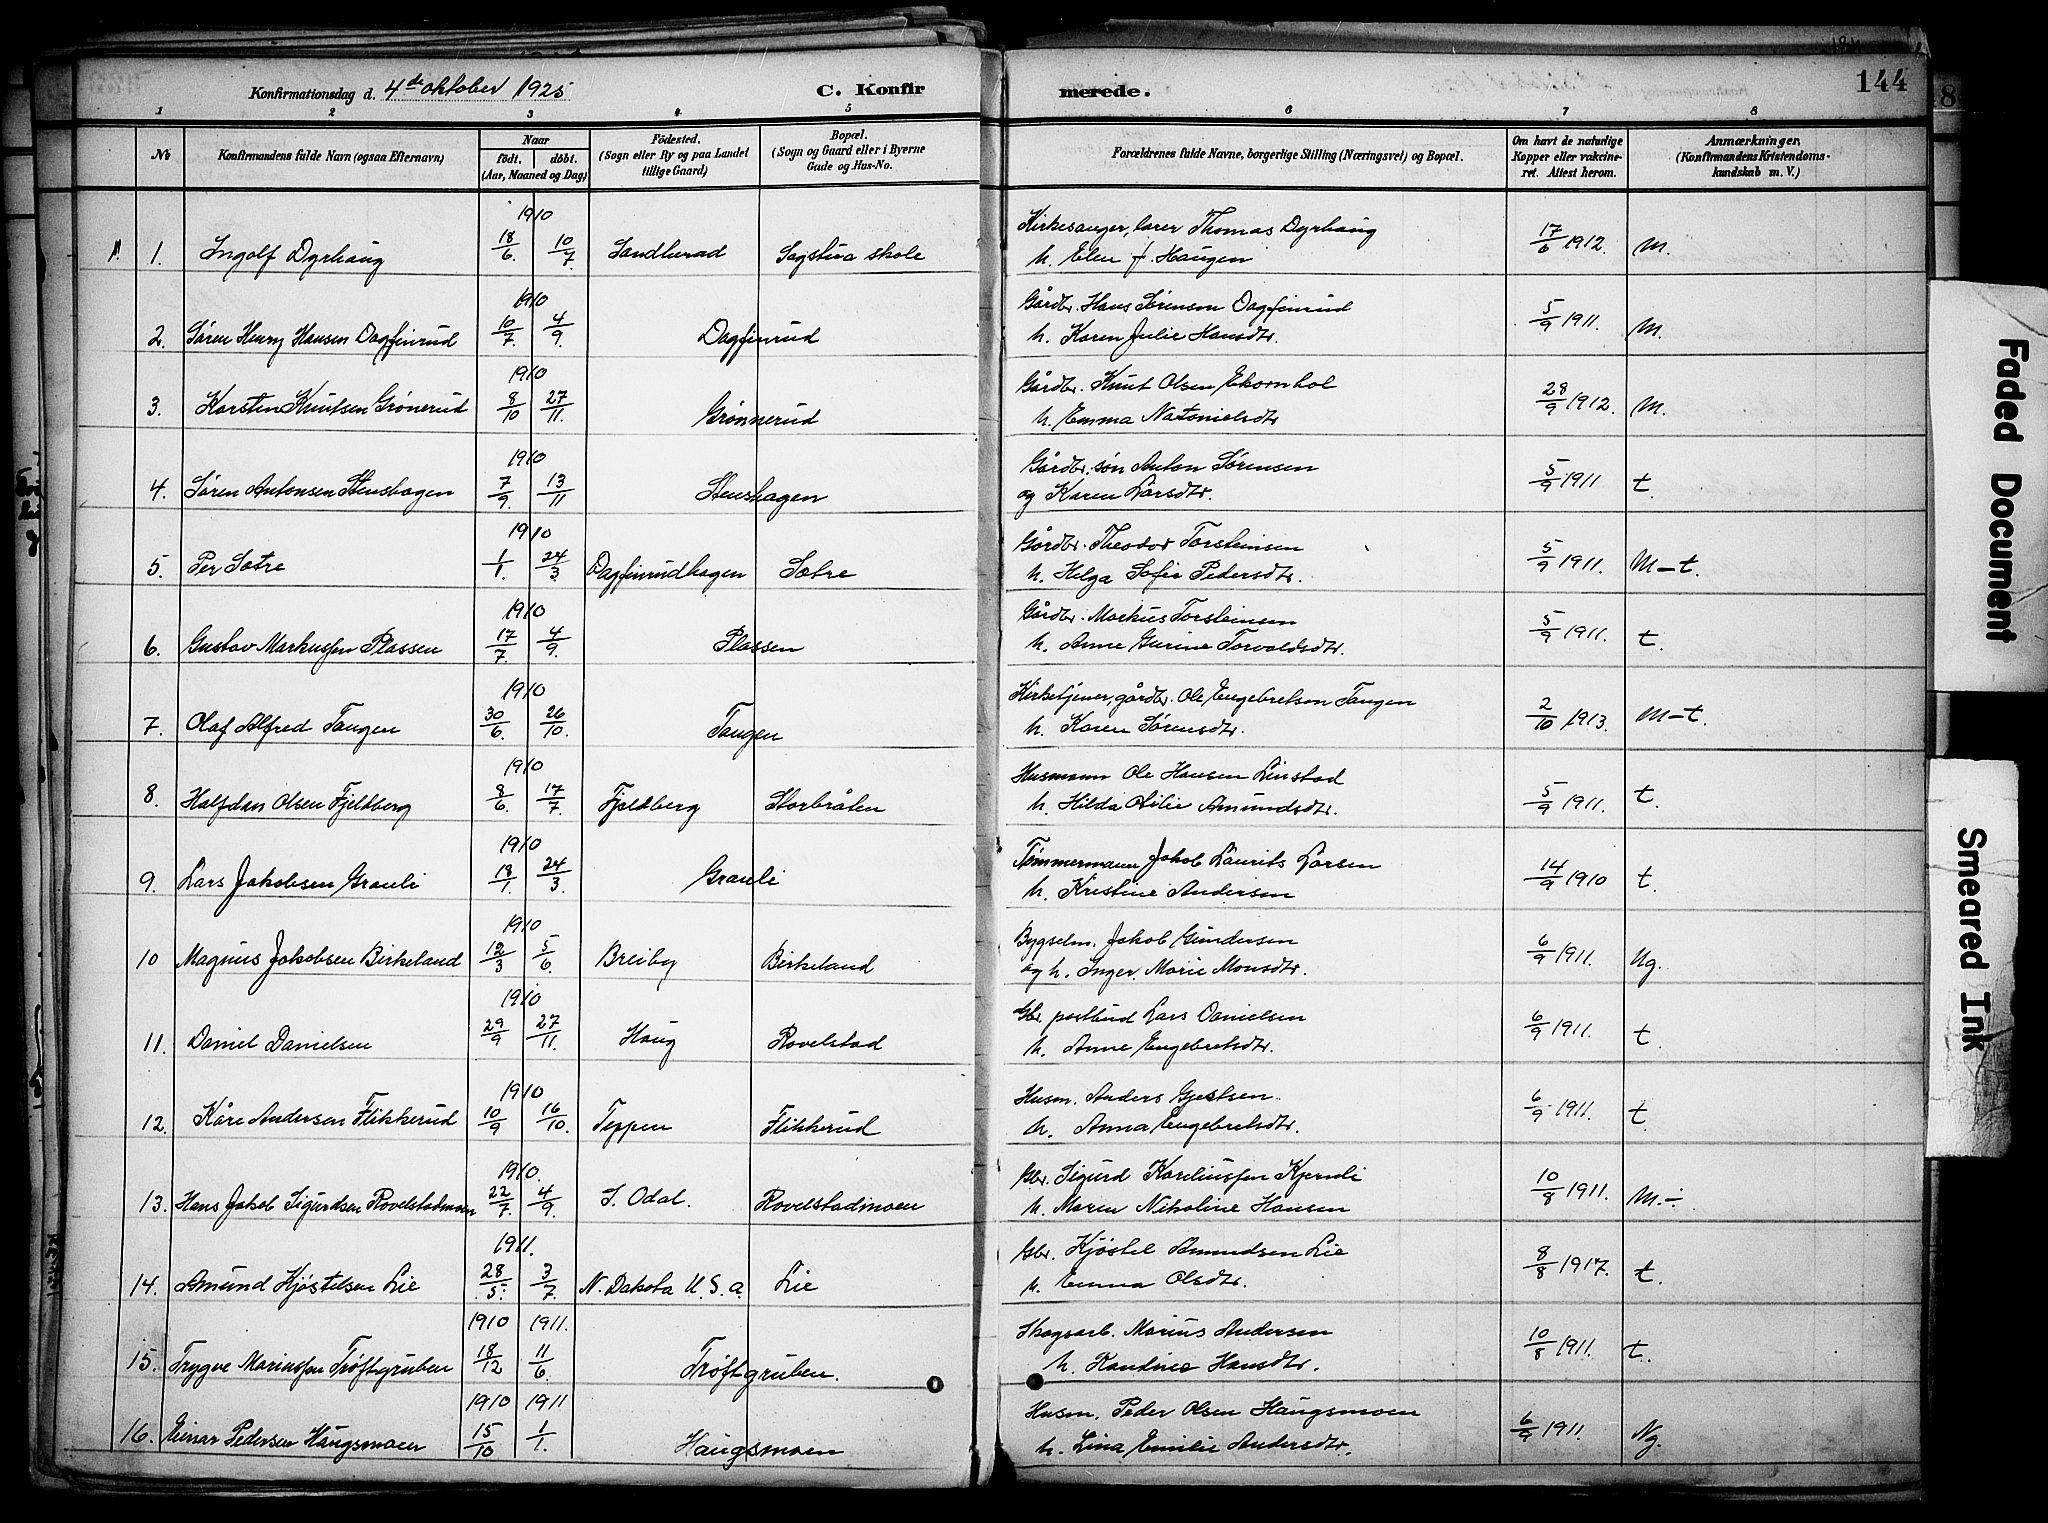 144
Konfirmationsdag d. 4de oktober 1925 C. Konfirmerede.
1 2 3 4 5 6 7 8
No Konfirmandens fulde Navn (ogsaa Efternavn) Naar födt. döbt. (Aar, Maaned og Dag) Födested. (Sogn eller By og paa Landet tillige Gaard) Bopæl. (Sogn og Gaard eller i Byerne Gade og Hus-No. Forældrenes fulde Navne, borgerlige Stilling (Næringsvei) og Bopæl. Om havt de naturlige Kopper eller vakcineret. Attest herom. Anmærkninger. (Konfirmandens Kristendomskundskab m. V.)
1910 Kirkesanger, lærer Thomas Dyrhaug
1. Ingolf Dyrhaug 18/6. 10/7 Sandherad Sagstua skole h. Elen f. Haugen 17/6 1912. M.
1910 Gårdbr. Hans Sørensen Dagfinrud
2. Søren Henry Hansen Dagfinrud 10/7. 4/9. Dagfinrud h. Karen Julie Hansdtr. 5/9 1911. M.
1910 Gårdbr. Knut Olsen Ekornhol
3. Karsten Knutsen Grønerud 8/10 27/11. Grønnerud h. Emma Natanielsdtr 28/9 1912. M.
1910 Gårdbr. søn Anton Sørensen
4. Søren Antonsen Stenshagen 7/9. 13/11 Stenshagen og Karen Larsdtr. 5/9 1911 t.
1910 Gårdbr. Theodor Torsteinsen
5. Per Sætre 1/1. 24/3. Dagfinrudhagen Sætre h. Helga Sofie Pedersdtr. 5/9 1911. M-t.
1910 Gårdbr. Markus Torsteinsen
6. Gustav Markussen Plassen 17/7. 4/9. Plassen h. Anne Gurine Torvaldsdtr. 5/9 1911. t.
1910 Kirketjener, gårdbr. Ole Engebretson Tangen
7. Olaf Alfred Tangen 30/6. 26/10. Tangen h. Karen Sørensdtr. 2/10 1913. M-t.
1910 Husmann Ole Hansen Linstad
8. Halfdan Olsen Fjeldberg 8/6. 17/7. Fjeldberg Storbråten h. Hilda Otilie Amundsdtr. 5/9 1911. t.
1910 Tømmermann Jakob Laurits Larsen
9. Lars Jakobsen Granli 18/1. 24/3. Granli h. Kristine Andersen 14/9 1910 t.
1910 Bygselm. Jakob Gundersen
10 Magnus Jakobsen Birkeland 12/3 5/6. Breiby Birkeland og h. Inger Marie Monsdtr. 6/9 1911. Ug.
1910 Gbr. postbud Lars Danielsen
11. Daniel Danielsen 29/9 27/11. Haug Rovelstad h. Anne Engebretsdtr. 6/9 1911. t.
1910 Husm. Anders Gjestsen
12. Kåre Andersen Flikkerud 10/9 16/10. Teppen Flikkerud h. Anna Engebretsdtr. 6/9 1911. t.
1910. Gbr. Sigurd Kareliussen Kjernli
13. Hans Jakob Sigurdsen Rovelstadmoen 22/7. 4/9. S. Odal. Rovelstadmoen h. Maren Nikoline Hansen 10/8 1911. M÷
1911. Gbr. Kjøstel Amundsen Lie
14. Amund Kjøstelsen Lie 28/5. 3/7 N. Dakota U.S.a. Lie h. Emma Olsdtr. 8/8 1917. t.
1910 1911. Skogsarb. Marius Andersen
15. Trygve Mariussen Trøftgruben 18/12 11/6. Trøftgruben. h. Kandine Hansdtr. 10/8 1911. t.
1910 1911 Husm. Peder Olsen Haugsmoen
16. Einar Pedersen Haugsmoen 15/10 1/1. Haugsmoen h. Lina Emilie Andersdtr. 6/9 1911. Ng.
Faded Document
Smeared Ink